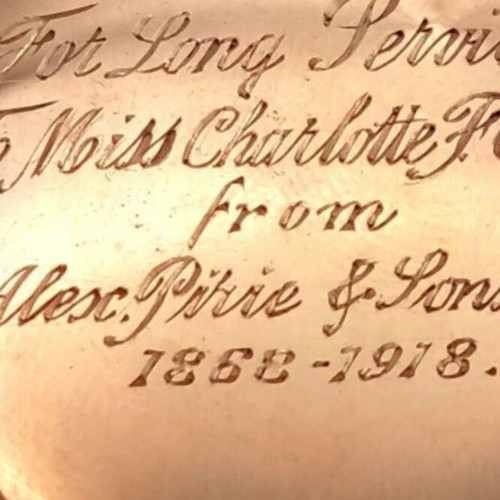 For Long Servi
To Miss Charlotte F
from
Alex. Pirie & Sons
1868-1918.